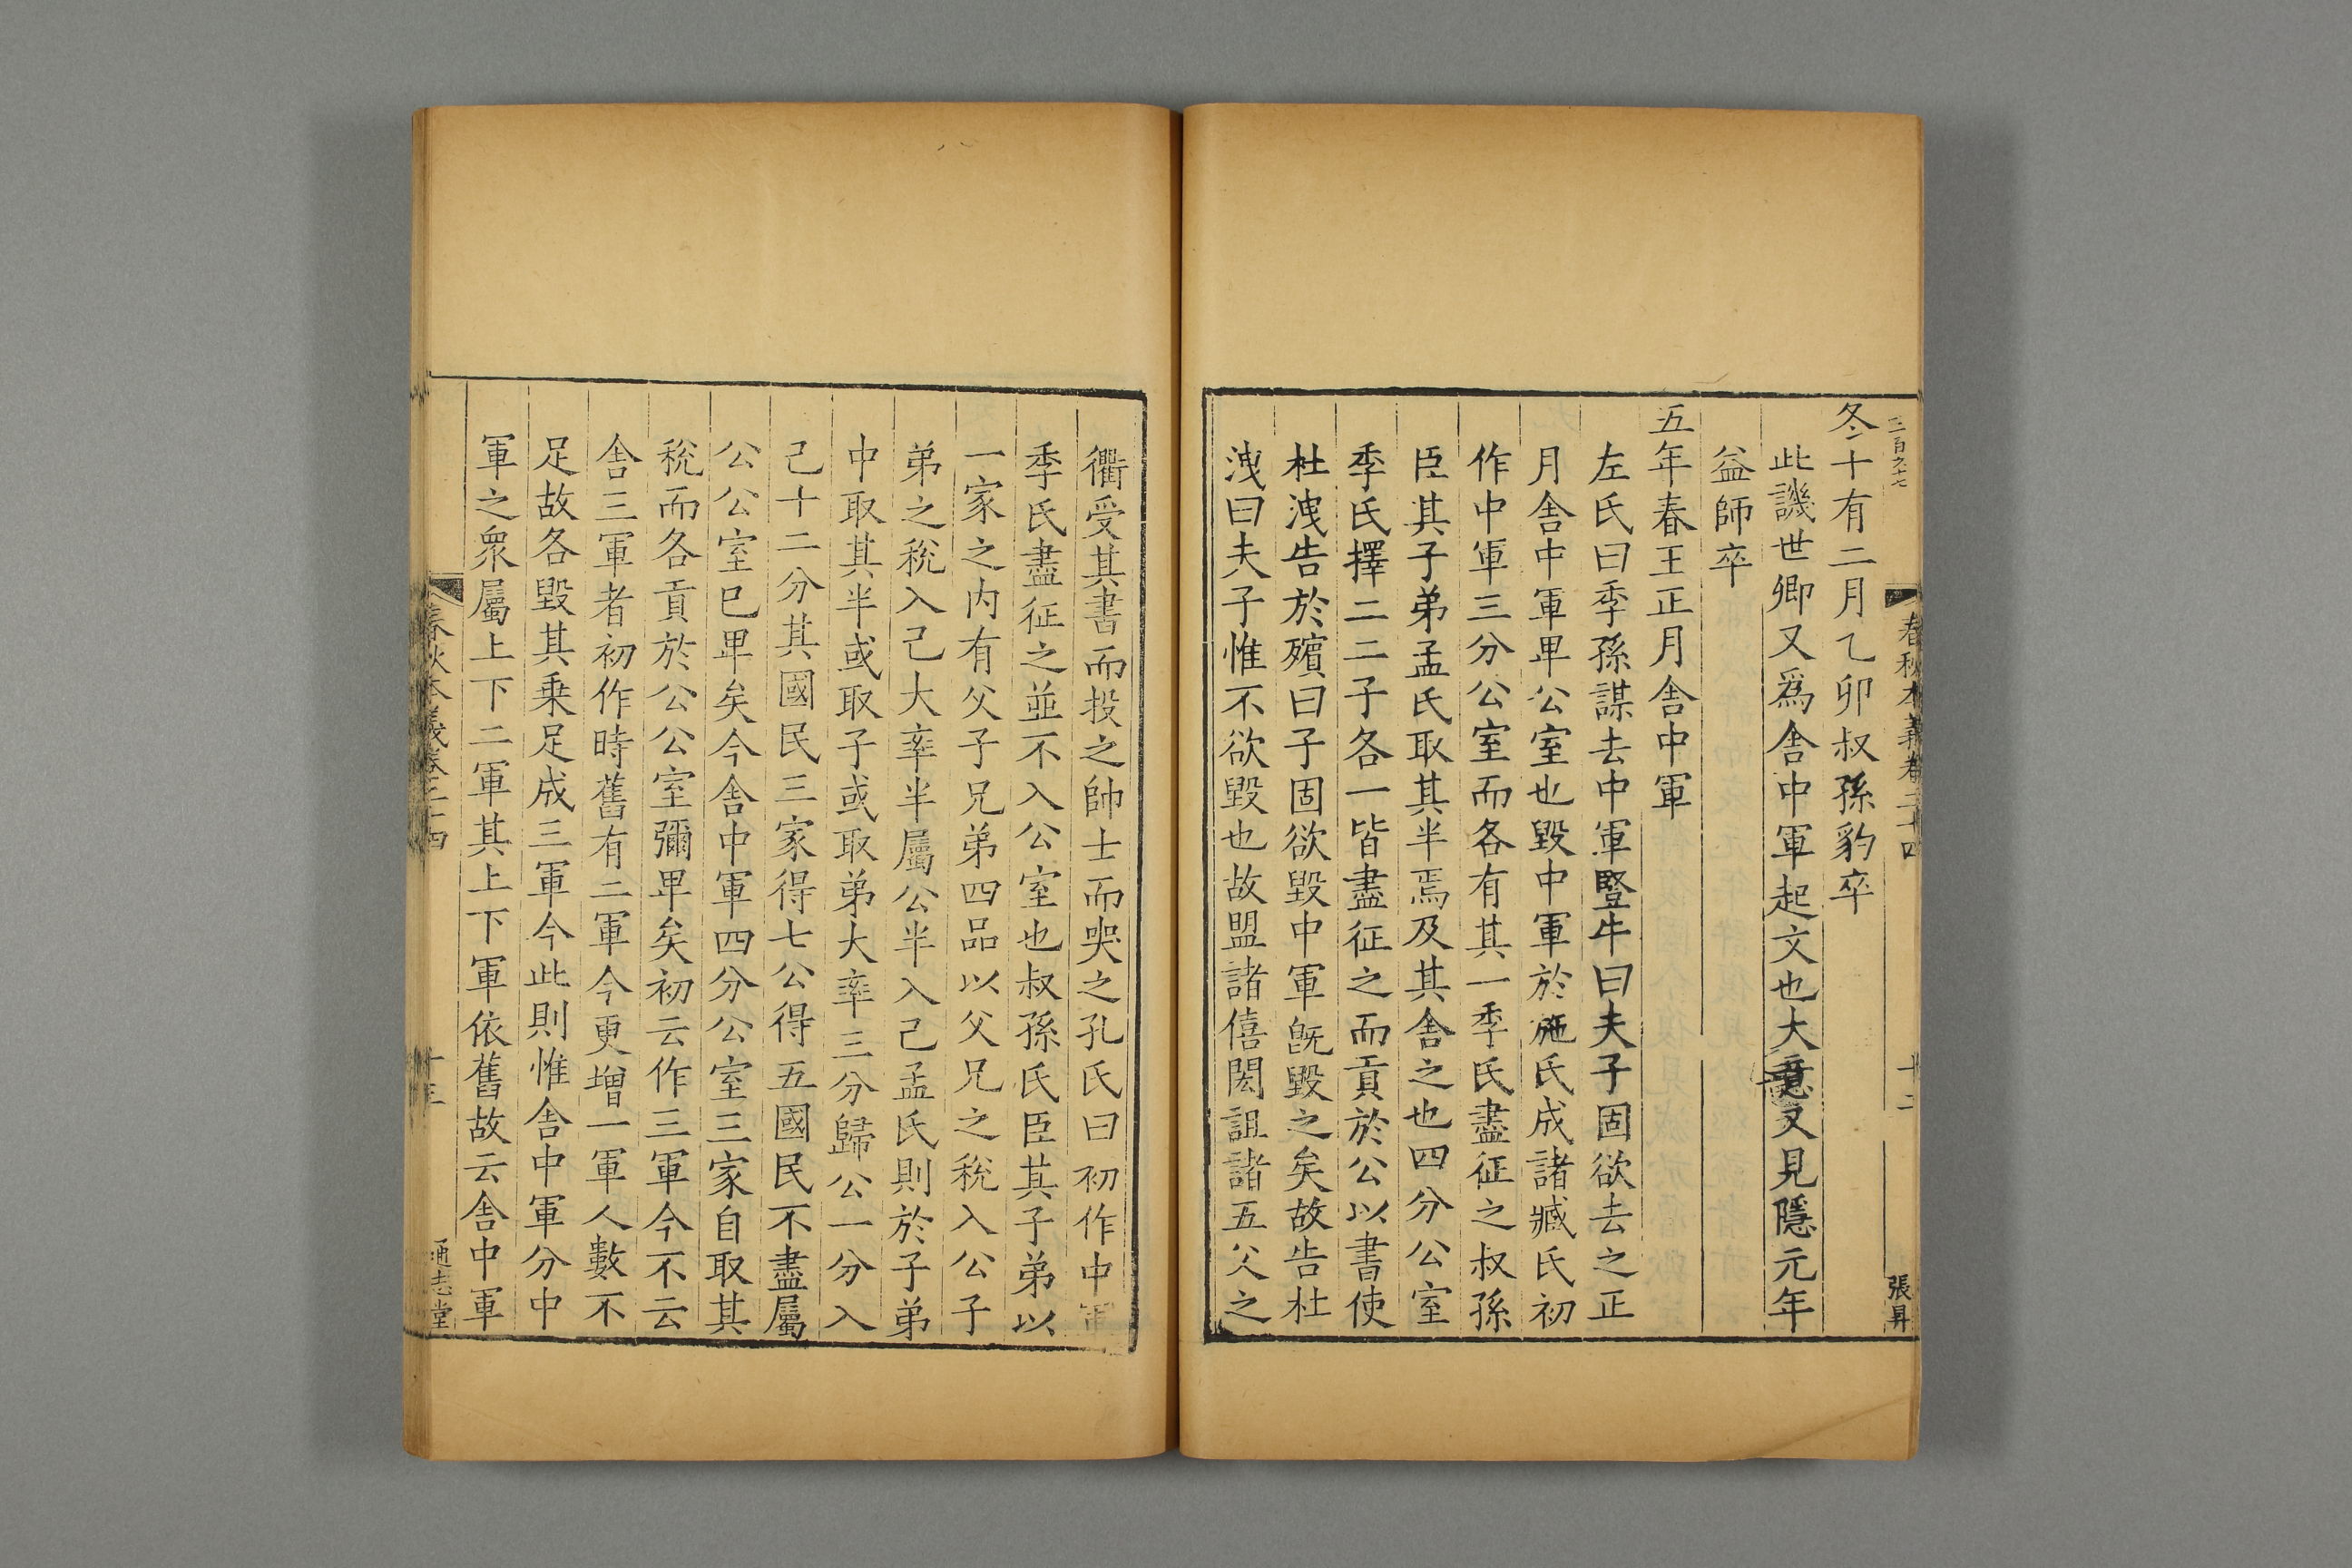 春秋本義卷二十四
十二
張昇
冬十有二月乙卯叔孫豹卒
此譏世卿又爲舍中軍起文也大意又見隱元年
益師卒
五年春王正月舍中軍
左氏曰季孫謀去中軍豎牛曰夫子固欲去之正
月舍中軍畢公室也毀中軍於施氏成諸臧氏初
作中軍三分公室而各有其一季氏盡征之叔孫
臣其子弟孟氏取其半焉及其舍之也四分公室
季氏擇二二子各一皆盡征之而貢於公以書使
杜洩告於殯曰子固欲毀中軍旣毀之矣故告杜
洩曰夫子惟不欲毀也故盟諸僖閎詛諸五父之
衢受其書而投之帥士而哭之孔氏曰初作中軍
季氏盡征之並不入公室也叔孫氏臣其子弟以
一家之内有父子兄弟四品以父兄之稅入公子
弟之稅入己大率半屬公半入己孟氏則於子弟
中取其半或取子或取弟大率三分歸公一分入
己十二分其國民三家得七公得五國民不盡屬
公公室巳畢矣今舍中軍四分公室三家自取其
稅而各貢於公公室彌畢矣初云作三軍今不云
舍三軍者初作時舊有二軍今更增一軍人數不
足故各毀其乗足成三軍今此則惟舍中軍分中
軍之衆屬上下二軍其上下軍依舊故云舍中軍
春秋本義卷二十四
通志堂